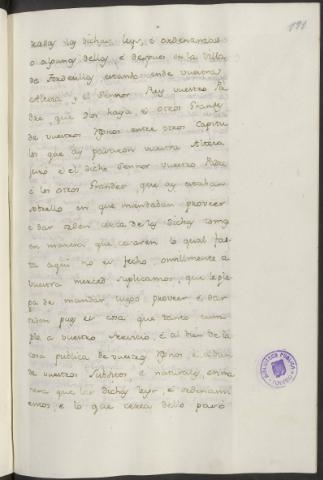 191
dichas leys, é ordenanzas
o algunas dellas, é despues en la Villa
de Tordesillas estando ende vuestra
Alteza, y el Señor Rey vuestro Pa
dre, que Dios haya, é otros Grandes
de vuestros Reynos entre otros Capitu
los que ay pasaron vuestra Alteza
juró é el dicho Señor vuestro Padre
é los otros Grandes, que ay estaban
sobrello en que mandadan proveer
é dar orden cerca de las dichas
en manera que cesaren lo qual fas
ta aqui no es fecho, omillmente a
vuestra merced suplicamos, que le ple
ga de mandar luego proveer é dar
orden pues es cosa que tanto cum
ple a vuestro servicio, é al bien de la
cosa publica de vuestros Reynos, é
de vuestros subditos, é naturales, en ma
nera que las dichas leys, é ordenami
entos, é lo que cerca dello pasó
BIBLIOTECA PUBLICA
TOLEDO